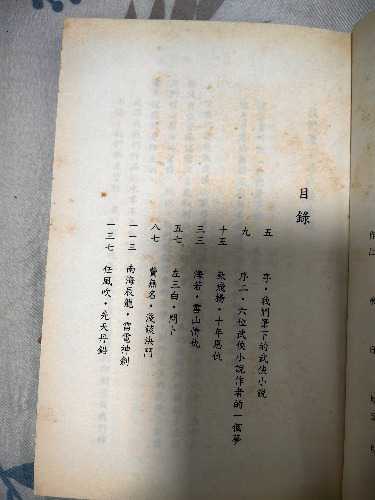 目錄
五 序·我們筆下的武俠小說
九 序二·六位武俠小說作者的一個夢
十五 十年恩仇
三三 滄若·雪山情仇
五七 左三白·問卜
八七 費無名·淺談洪門
一一三 南海辰龍·雷電神劍
一三七 任風吹·先天丹鉛